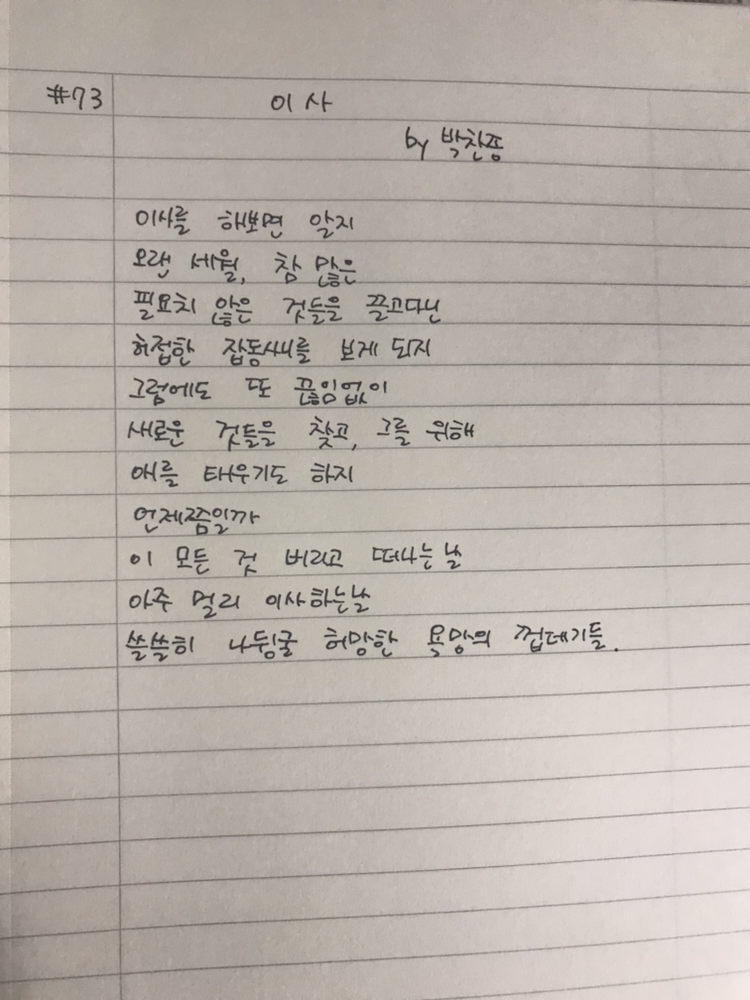 #73
이사
by 박찬중
이사를 해보면 알지
오랜 세월, 참 많은
필요치 않은 것들을 끌고다닌
허접한 잡동사니를 보게 되지
그럼에도 또 끊임없이
새로운 것들을 찾고, 그를 위해
애를 태우기도 하지
언제쯤일까
이 모든 것 버리고 떠나는 날
아주 멀리 이사하는날
쓸쓸히 나뒹굴 허망한 욕망의 껍데기들.